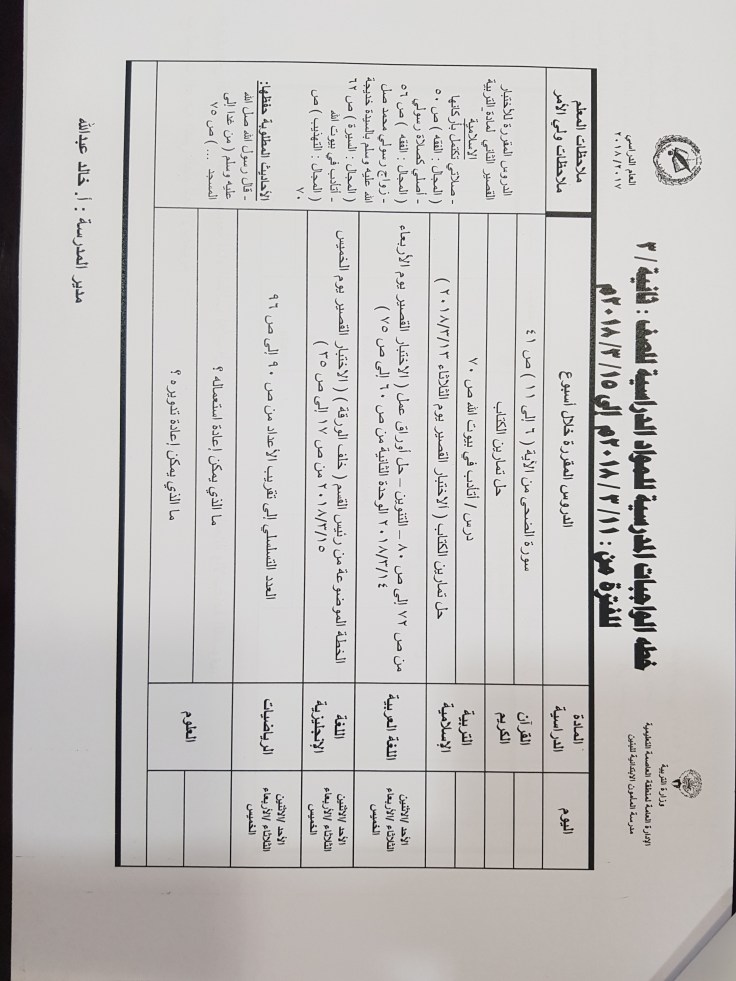 وزارة التربية
الإدارة العامة لمنطقة العاصمة التعليمية
مدرسة المأمون الابتدائية للبنين
العام الدراسي
٢٠١٨/٢٠١٧
خطة الواجبات المدرسية للمواد الدراسية للصف : ثانية / ٣
للفترة من : ١١ / ٣ / ٢٠١٨م إلى ١٥ / ٣ / ٢٠١٨م
اليوم
المادة الدراسية
الدروس المقررة خلال أسبوع
ملاحظات المعلم
ملاحظات ولي الأمر
القرآن الكريم
سورة الضحى من الآية ( ٦ إلى ١١ ) ص ٤١
حل تمارين الكتاب
التربية الإسلامية
درس / أتأدب في بيوت الله ص ٧٠
حل تمارين الكتاب ( الاختبار القصير يوم الثلاثاء ٢٠١٨/٣/١٣ )
الأحد /الاثنين
الثلاثاء /الأربعاء
الخميس
اللغة العربية
من ص ٧٢ إلى ص ٨٠ – التنوين – حل أوراق عمل ( الاختبار القصير يوم الأربعاء
٢٠١٨/٣/١٤ الوحدة الثانية من ص ٦٠ إلى ص ٧٥ )
الأحد /الاثنين
الثلاثاء /الأربعاء
الخميس
اللغة الإنجليزية
الخطة الموضوعة من رئيس القسم ( خلف الورقة ) ( الاختبار القصير يوم الخميس
٢٠١٨/٣/١٥ من ص ١٧ إلى ص ٣٥ )
الأحد /الاثنين
الثلاثاء /الأربعاء
الخميس
الرياضيات
العدد التسلسلي إلى تقريب الأعداد من ص ٩٠ إلى ص ٩٦
العلوم
ما الذي يمكن إعادة استعماله ؟
ما الذي يمكن إعادة تدويره ؟
الدروس المقررة للاختبار
القصير الثاني لمادة التربية
الإسلامية
ـ صلاتي تكتمل بأركانها
( المجال : الفقه ) ص ٥٠
ـ أصلي كصلاة رسولي
( المجال : الفقه ) ص ٥٦
ـ زواج رسولي محمد صل
الله عليه وسلم بالسيدة خديجة
( المجال : السيرة ) ص ٦٢
ـ أتأدب في بيوت الله
( المجال : التهذيب ) ص
٧٠
الأحاديث المطلوبة حفظها:
ـ قال رسول الله صل الله
عليه وسلم ( من غدا إلى
المسجد ... ) ص ٧٥
مدير المدرسة : أ. خالد عبدالله